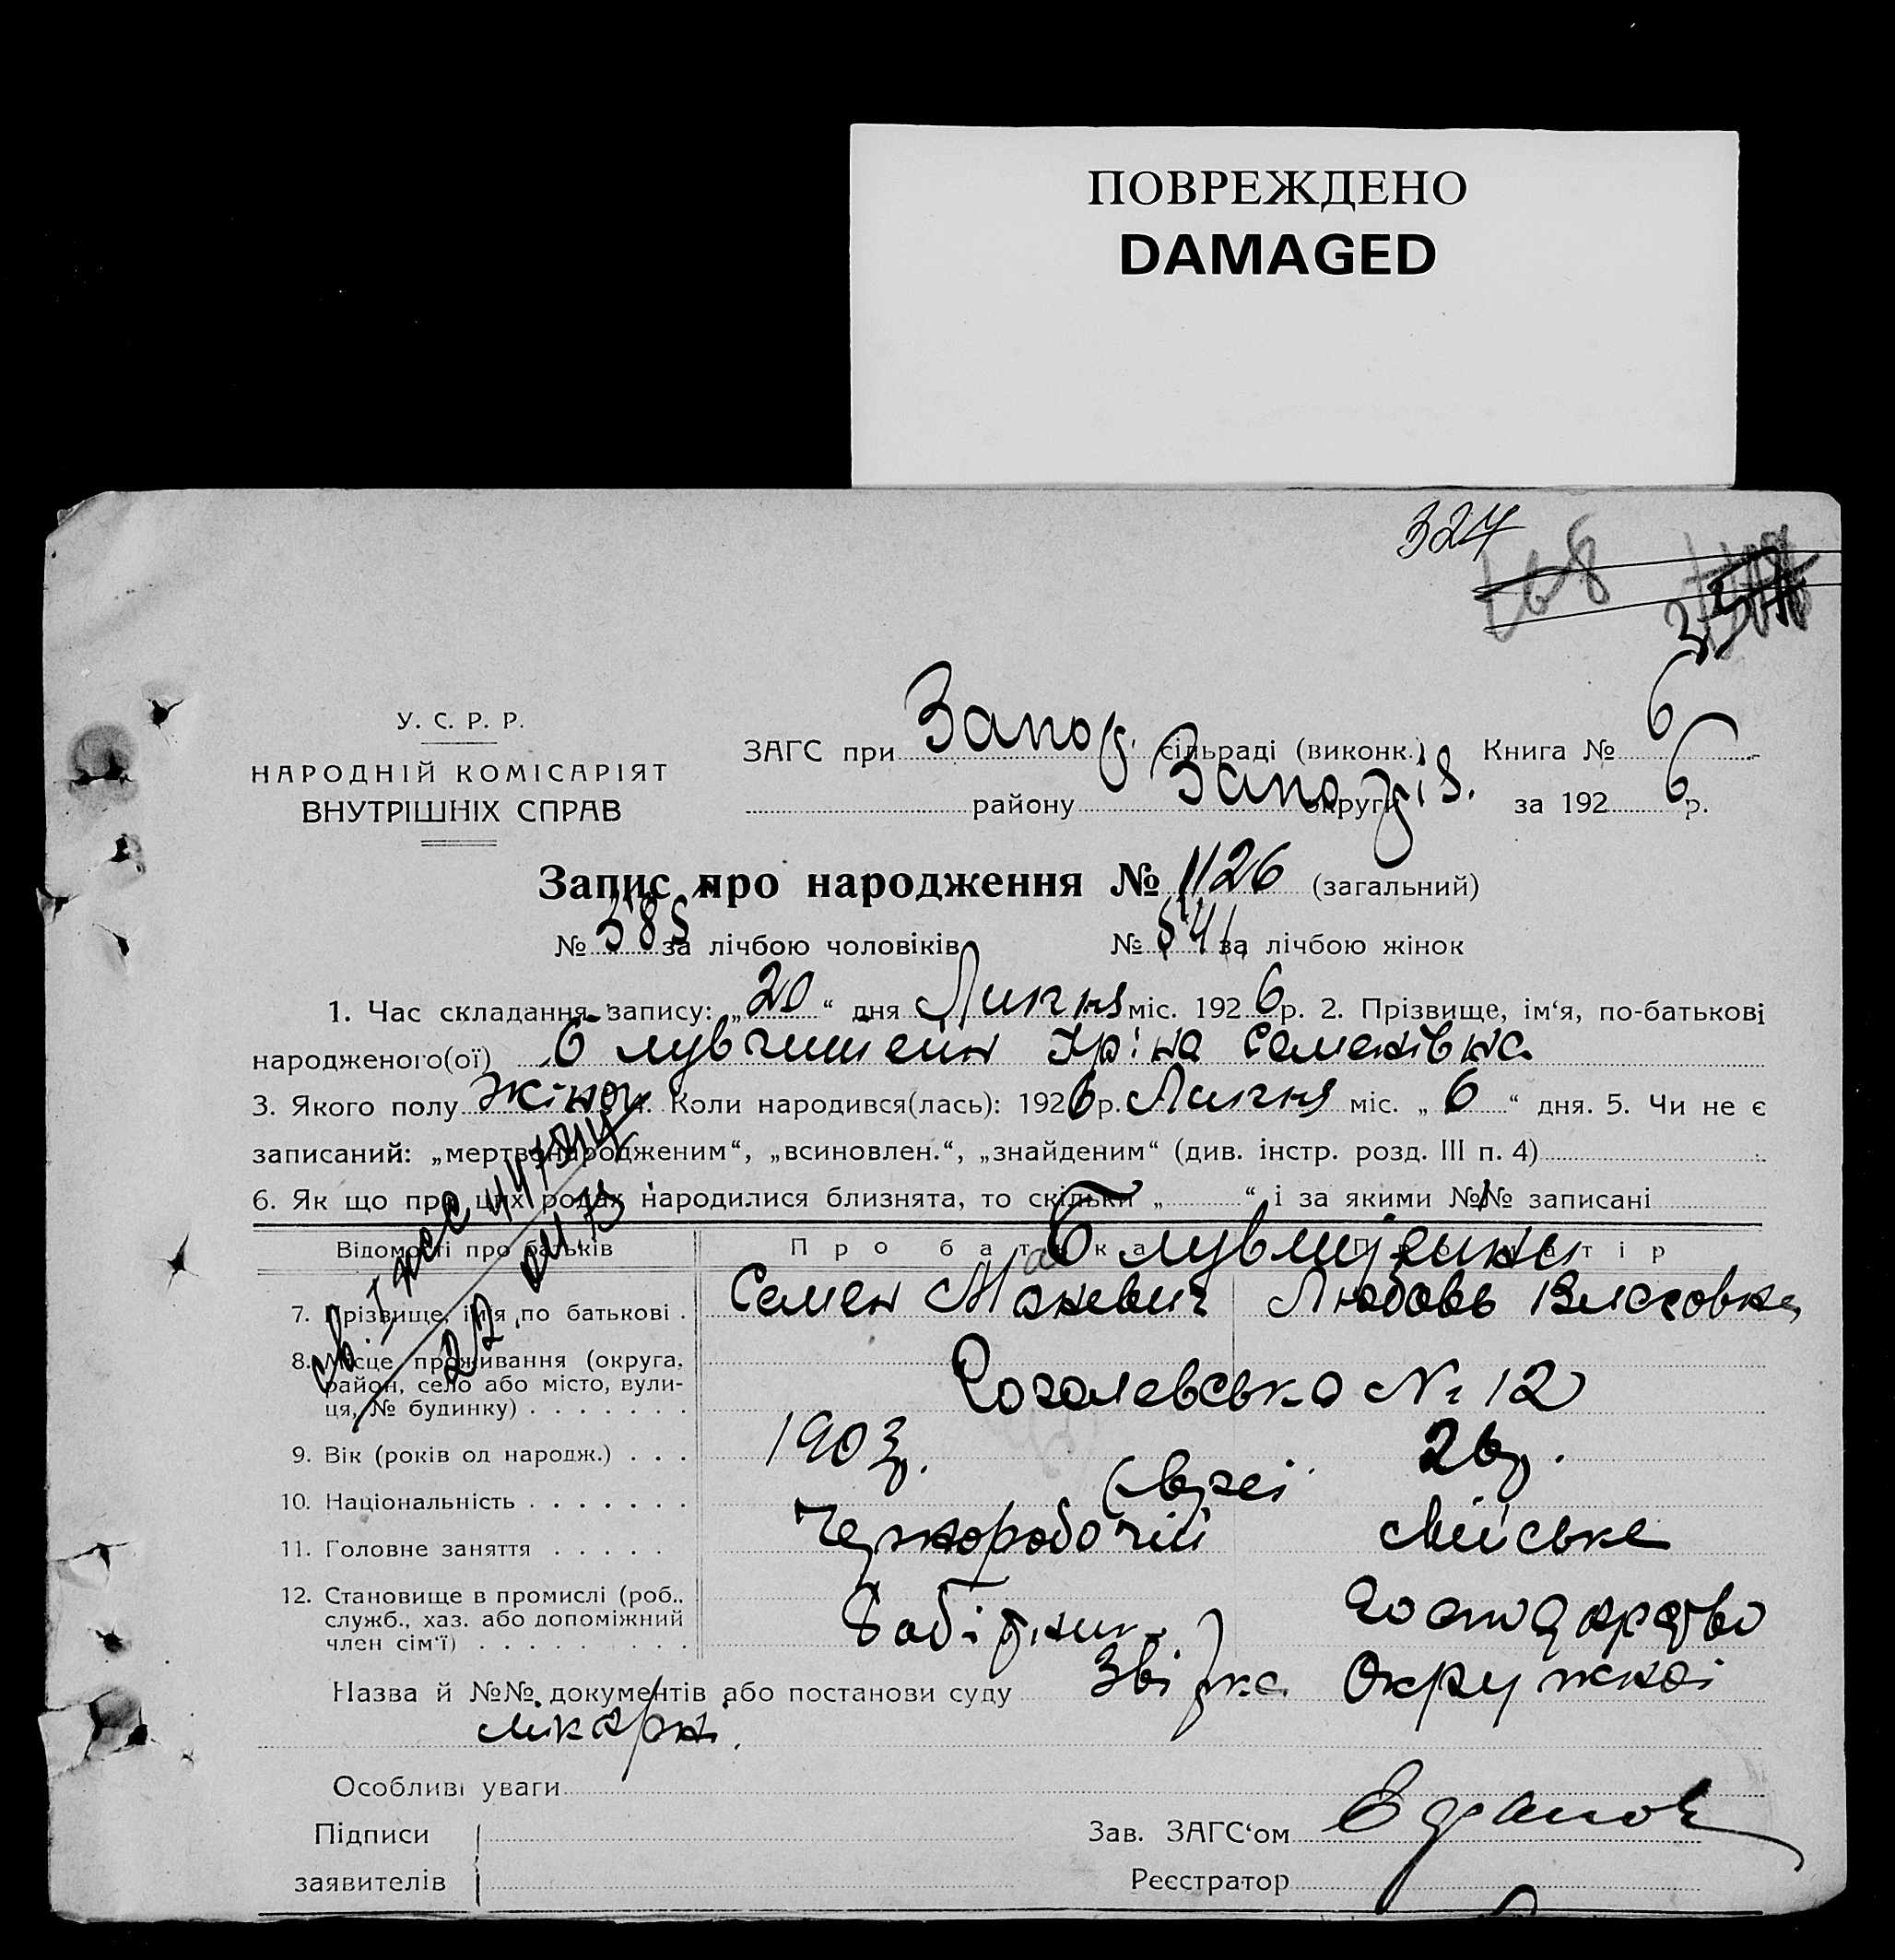 ПОВРЕЖДЕНО
DAMAGED
324
168
У. С. Р. Р.
НАРОДНІЙ КОМІСАРІЯТ
ВНУТРІШНІХ СПРАВ
ЗАГС при Запор. сільраді (виконк.) Книга № 6
району Запоріз. округи за 1926 р.
Запис про народження № 1126 (загальний)
№ 585 за лічбою чоловіків № 541 за лічбою жінок
1. Час складання запису: „20“ дня Липня міс. 1926 р. 2. Прізвище, ім‘я, по-батькові
народженого(ої) Ірина Семенівна
3. Якого полу жіноч. Коли народився(лась): 1926 р. Липня міс. „6“ дня. 5. Чи не є
записаний: „мертвонародженим“, „всиновлен.“, „знайденим“ (див. інстр. розд. III п. 4)
6. Як що при цих родах народилися близнята, то скільки „ “ і за якими №№ записані
Відомості про батьків Про батька Про матір
7. Прізвище, ім‘я, по батькові . Семен Любовь
8. Місце проживання (округа,
район, село або місто, вули-
ця, № будинку) . . . . . . . Гоголевська № 12
9. Вік (років од народж.) . . . 1903 р. 26 р.
10. Національність . . . . . . . Євреї
11. Головне заняття . . . . . Черноробочий Міське
12. Становище в промислі (роб.,
служб., хаз. або допоміжний
член сім‘ї) . . . . . . . . . Робітник господарство
Назва й №№ документів або постанови суду Звідка Окружної
лікарні.
Особливі уваги
Підписи
заявителів
Зав. ЗАГС‘ом
Реєстратор